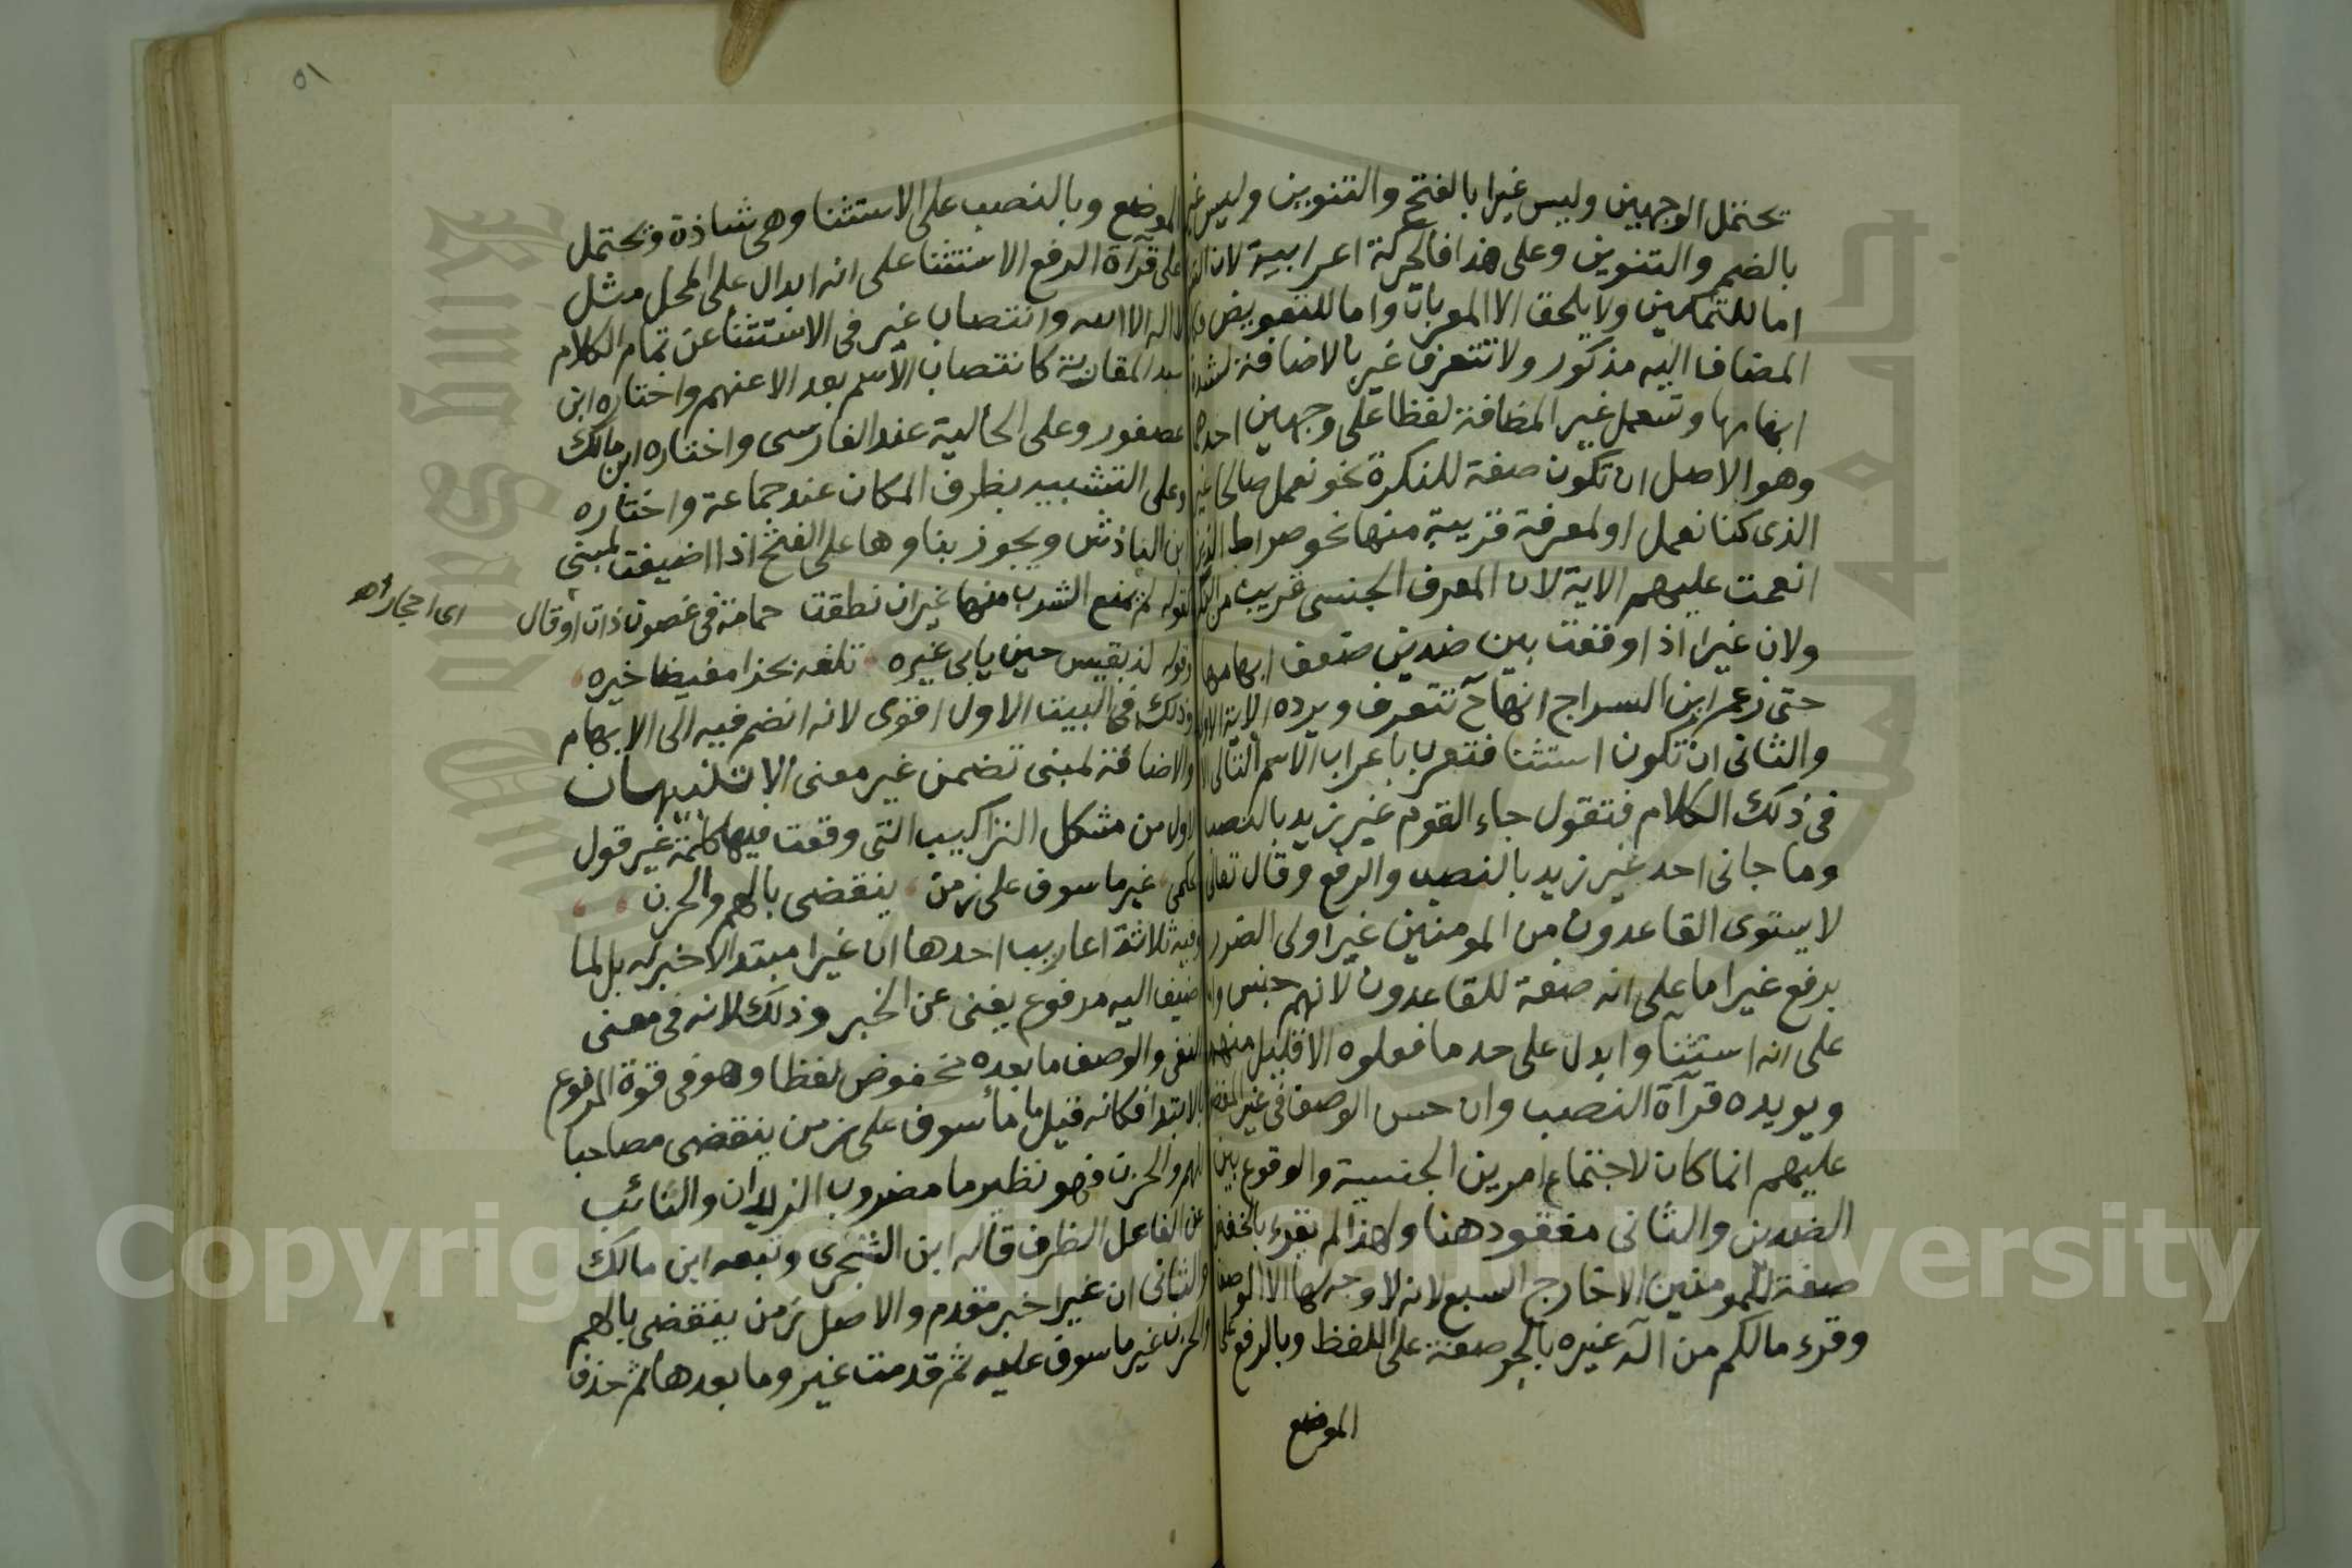 يحتمل الوجهين وليس غيرا بالفتح والتنوين وليس غير
بالضم والتنوين وعلى هذا فالحركة اعرابية لان
اما للتمكين ولا يلحق الا المعربات واما للتعويض
المضاف اليه مذكور ولا تتعرف غير بالاضافة لشدة
ابهامها وتستعمل غير المضافة لفظا على وجهين احدها
وهو الاصل ان تكون صفة للنكرة نحو نعمل صالحا غير
الذى كنا نعمل او لمعرفة قريبة منها نحو صراط الذين
انعمت عليهم الاية لان المعرف الجنسى قريب من
ولان غيرا اذا وقعت بين ضدين ضعف ابهامها
حتى زعم ابن السراج انها ح تتعرف ويرده الاية الاولى
والثانى ان تكون استثنا فتعرب باعراب الاسم التالى
فى ذلك الكلام فتقول جاء القوم غير زيد بالنصب
وما جانى احد غير زيد بالنصب والرفع وقال تعالى
لا يستوى القاعدون من المومنين غير اولى الضرر
برفع غير اما على انه صفة للقاعدون لانهم جنس
على انه استثنا وابدل على حد ما فعلوه الا قليل منهم
ويويده قرآة النصب وان حسن الوصف فى غير المغضوب
عليهم انما كان لاجتماع امرين الجنسية والوقوع بين
الضدين والثانى مفقود هنا ولهذا لم يقرء بالخفض
صفة للمومنين الا خارج السبع لانه لا وجه لها الا الوصف
وقرء مالكم من اله غيره بالجر صفة على اللفظ وبالرفع على
الموضع
٥١
الموضع وبالنصب على الاستثنا وهى شاذة ويحتمل
على قرآة الرفع الاستثنا على انه ابدال على المحل مثل
لا اله الا الله وانتصاب غير فى الاستثنا عن تمام الكلام
عند المغاربة كانتصاب الاسم بعد الا عنهم واختاره ابن
عصفور وعلى الحالية عند الفارسى واختاره ابن مالك
وعلى التشبيه بظرف المكان عند جماعة واختاره
ابن الباذش ويجوز بناوها على الفتح اذا اضيفت لمبنى
كقوله لم يمنع الشرب منها غير ان نطقت حمامة فى غصون ذات اوقال
اى احجار اه
وقوله لذ بقيس حين يابى غيره تلفه بحرا مفيضا خيره
وذلك فى البيت الاول اقوى لانه انضم فيه الى الابهام
والاضافة لمبنى تضمن غير معنى الا تنبيهان
الاول من مشكل التراكيب التى وقعت فيها كلمة غير قول
الحكمى غير ماسوف على زمن ينقضى بالهم والحزن
وفيه ثلاثة اعاريب احدها ان غيرا مبتدا لا خبر له بل لما
اضيف اليه مرفوع يغنى عن الخبر وذلك لانه فى معنى
النفى والوصف ما بعده مخفوض لفظا وهو فى قوة المرفوع
بالابتدا فكانه قيل ما مأسوف على زمن ينقضى مصاحبا
للهم والحزن فهو نظير ما مضروب الزيدان والنائب
عن الفاعل الظرف قاله ابن الشجرى وتبعه ابن مالك
والثانى ان غيرا خبر مقدم والاصل زمن ينقضى بالهم
والحزن غير ماسوف عليه ثم قدمت غير وما بعدها ثم حذف
Copyright © King Saud University
جامعة الملك سعود
King Saud University